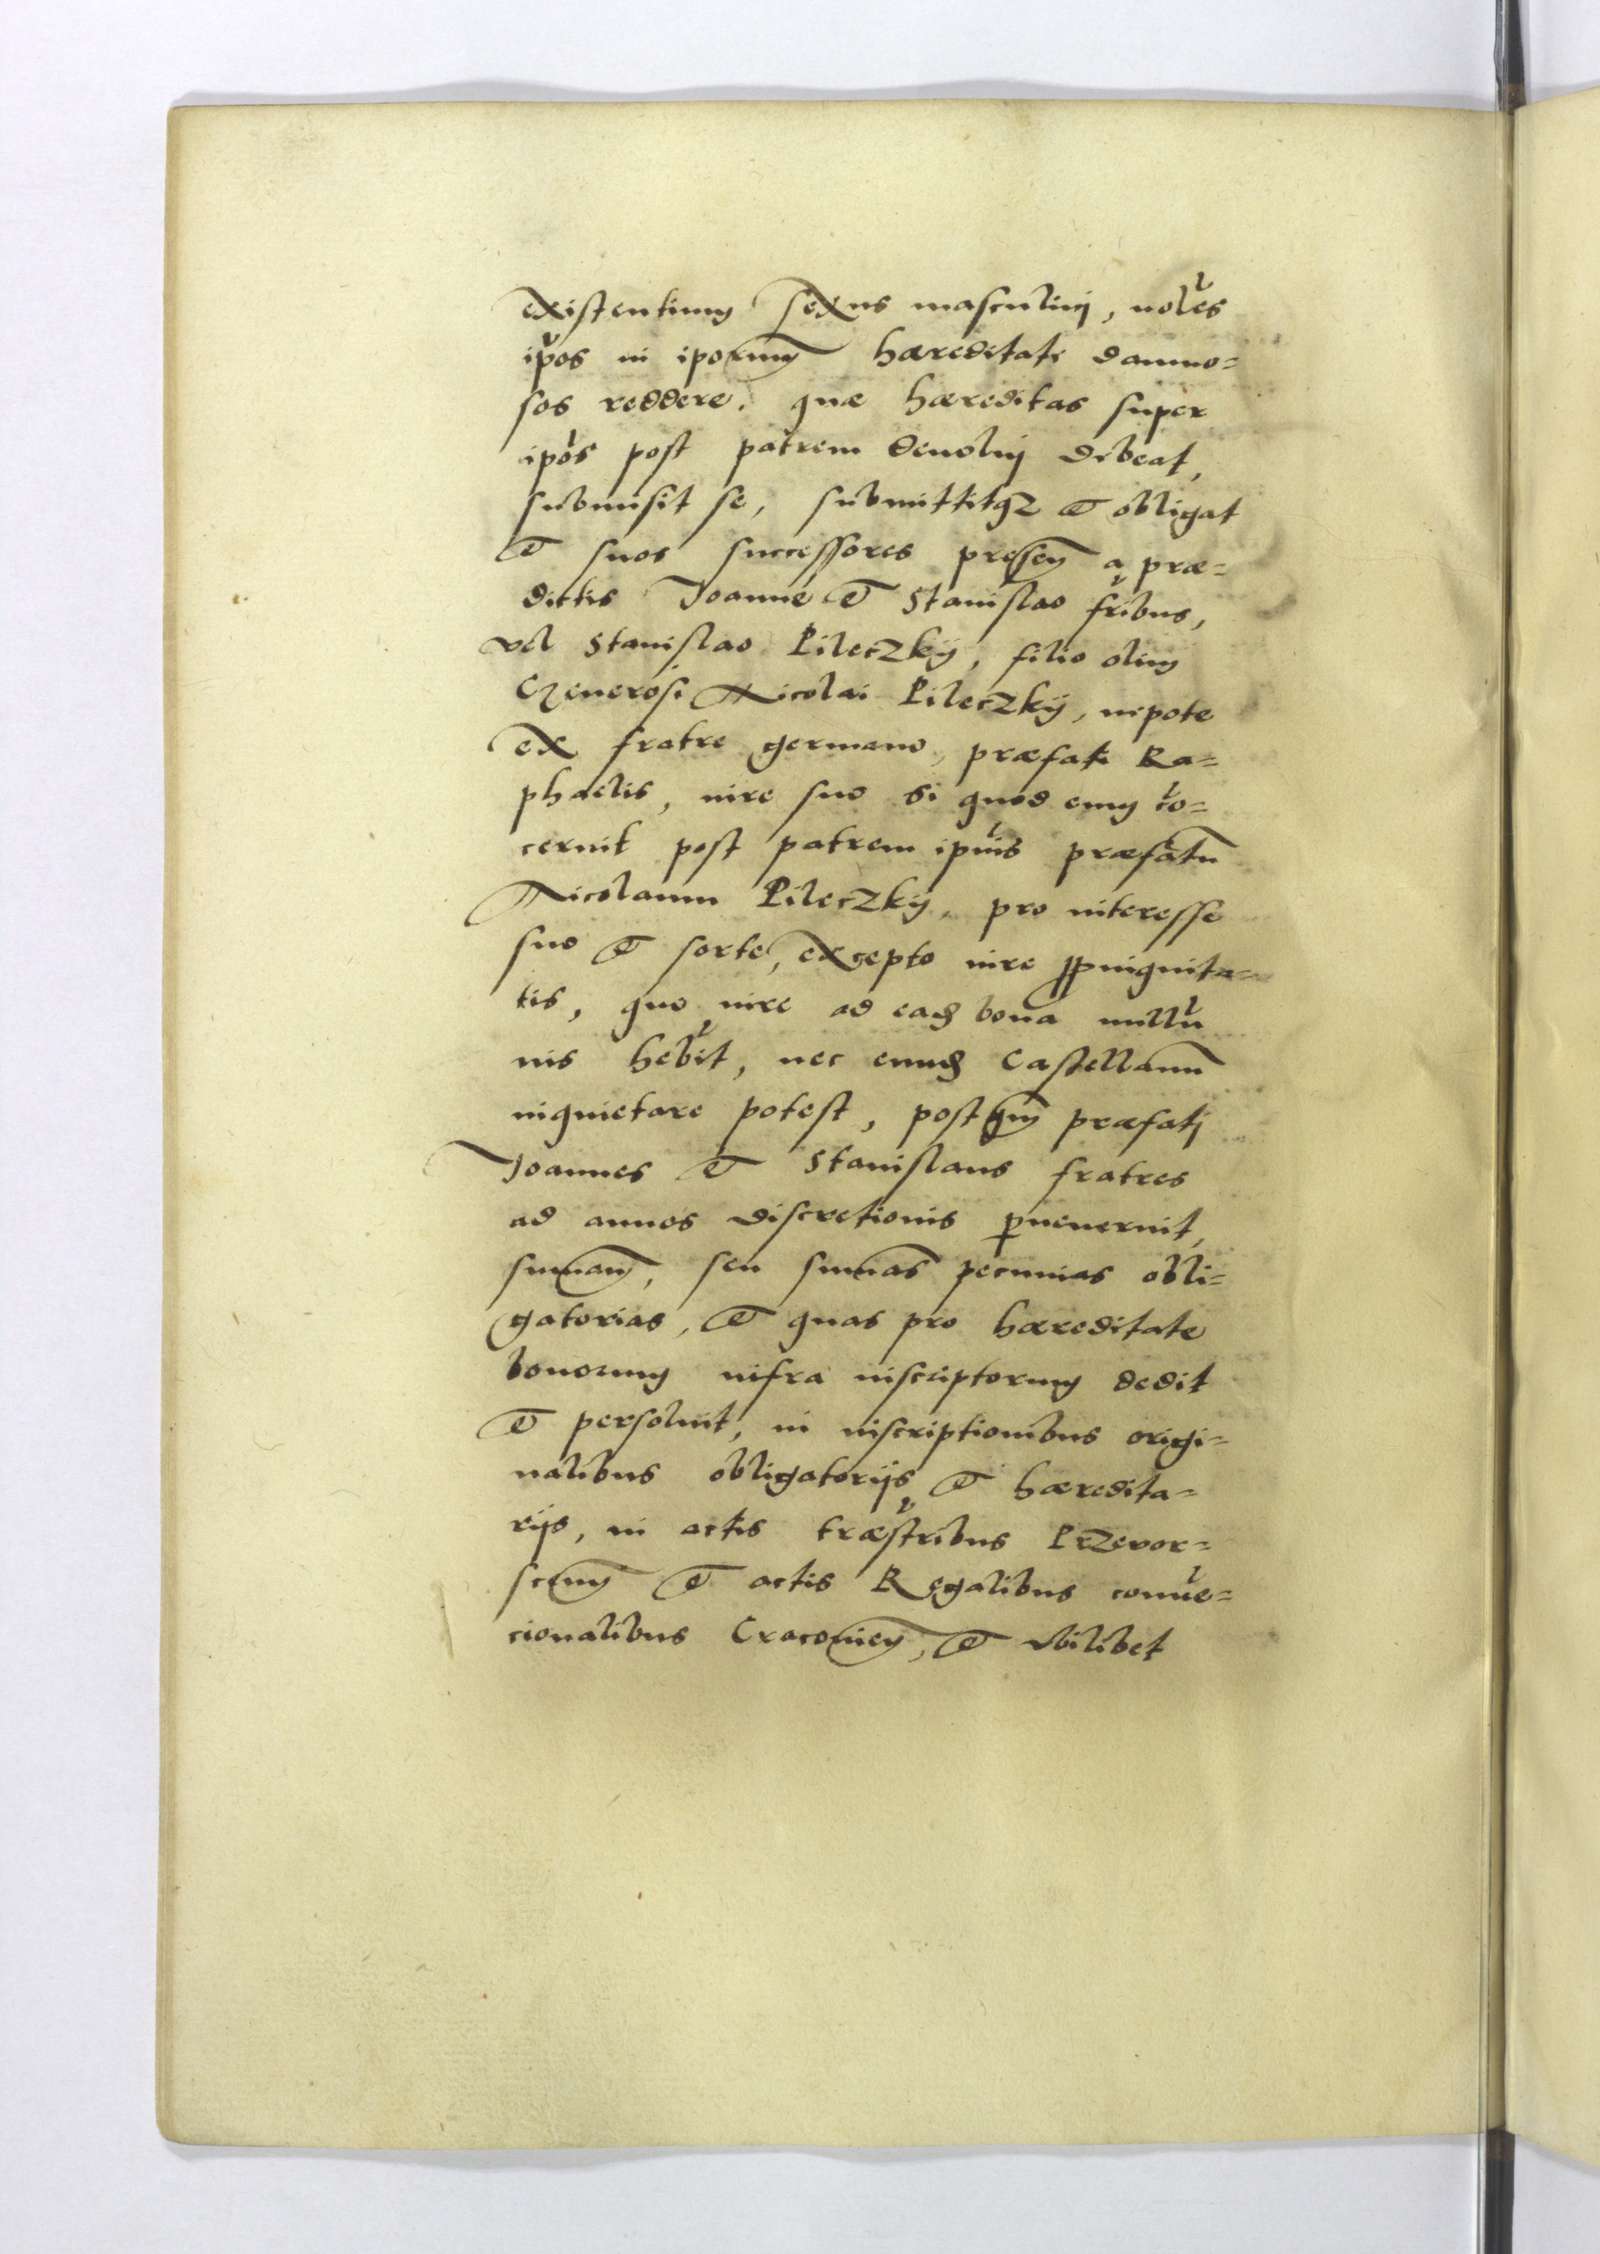 existentium sexus masculini, nolēs
ip̄os in ipōrum hæreditati damno=
sos reddere. quæ hæreditas super
ipōs post patrem deuolui debeat,
submisit se, submittitqz et obligat
et suos successores presen̄ a præ=
dictis Joanne et Stanislao fr̄ibus,
vel Stanislao Pileczkÿ, filio olim
Generosi Nicolai Pileczkÿ, nepote
ex fratre germano, præfati Ra=
phaelis, iure suo si quod eum cō=
cernit post patrem ipīus præfatū
Nicolaum Pileczkÿ, pro interesse
suo et sorte, excepto iure propinquita=
tis, quo iure ad eadē bona nullū
ius hēbit, nec eundē Castellanū
inquietare potest, postqm̄ præfati
Joannes et Stanislaus fratres
ad annos discretionis p̱uenerint,
sum̄am, seu sum̄as pecunias obli=
gatorias, et quas pro hæreditate
bonorum infra inscriptorum dedit
et persoluit, in inscriptionibus origi=
nalibus obligatorijs et hæredita=
rijs, in actis træstribus Przewor=
scen̄ et actis Regalibus conuē=
cionalibus Cracouien̄, et vbilibet